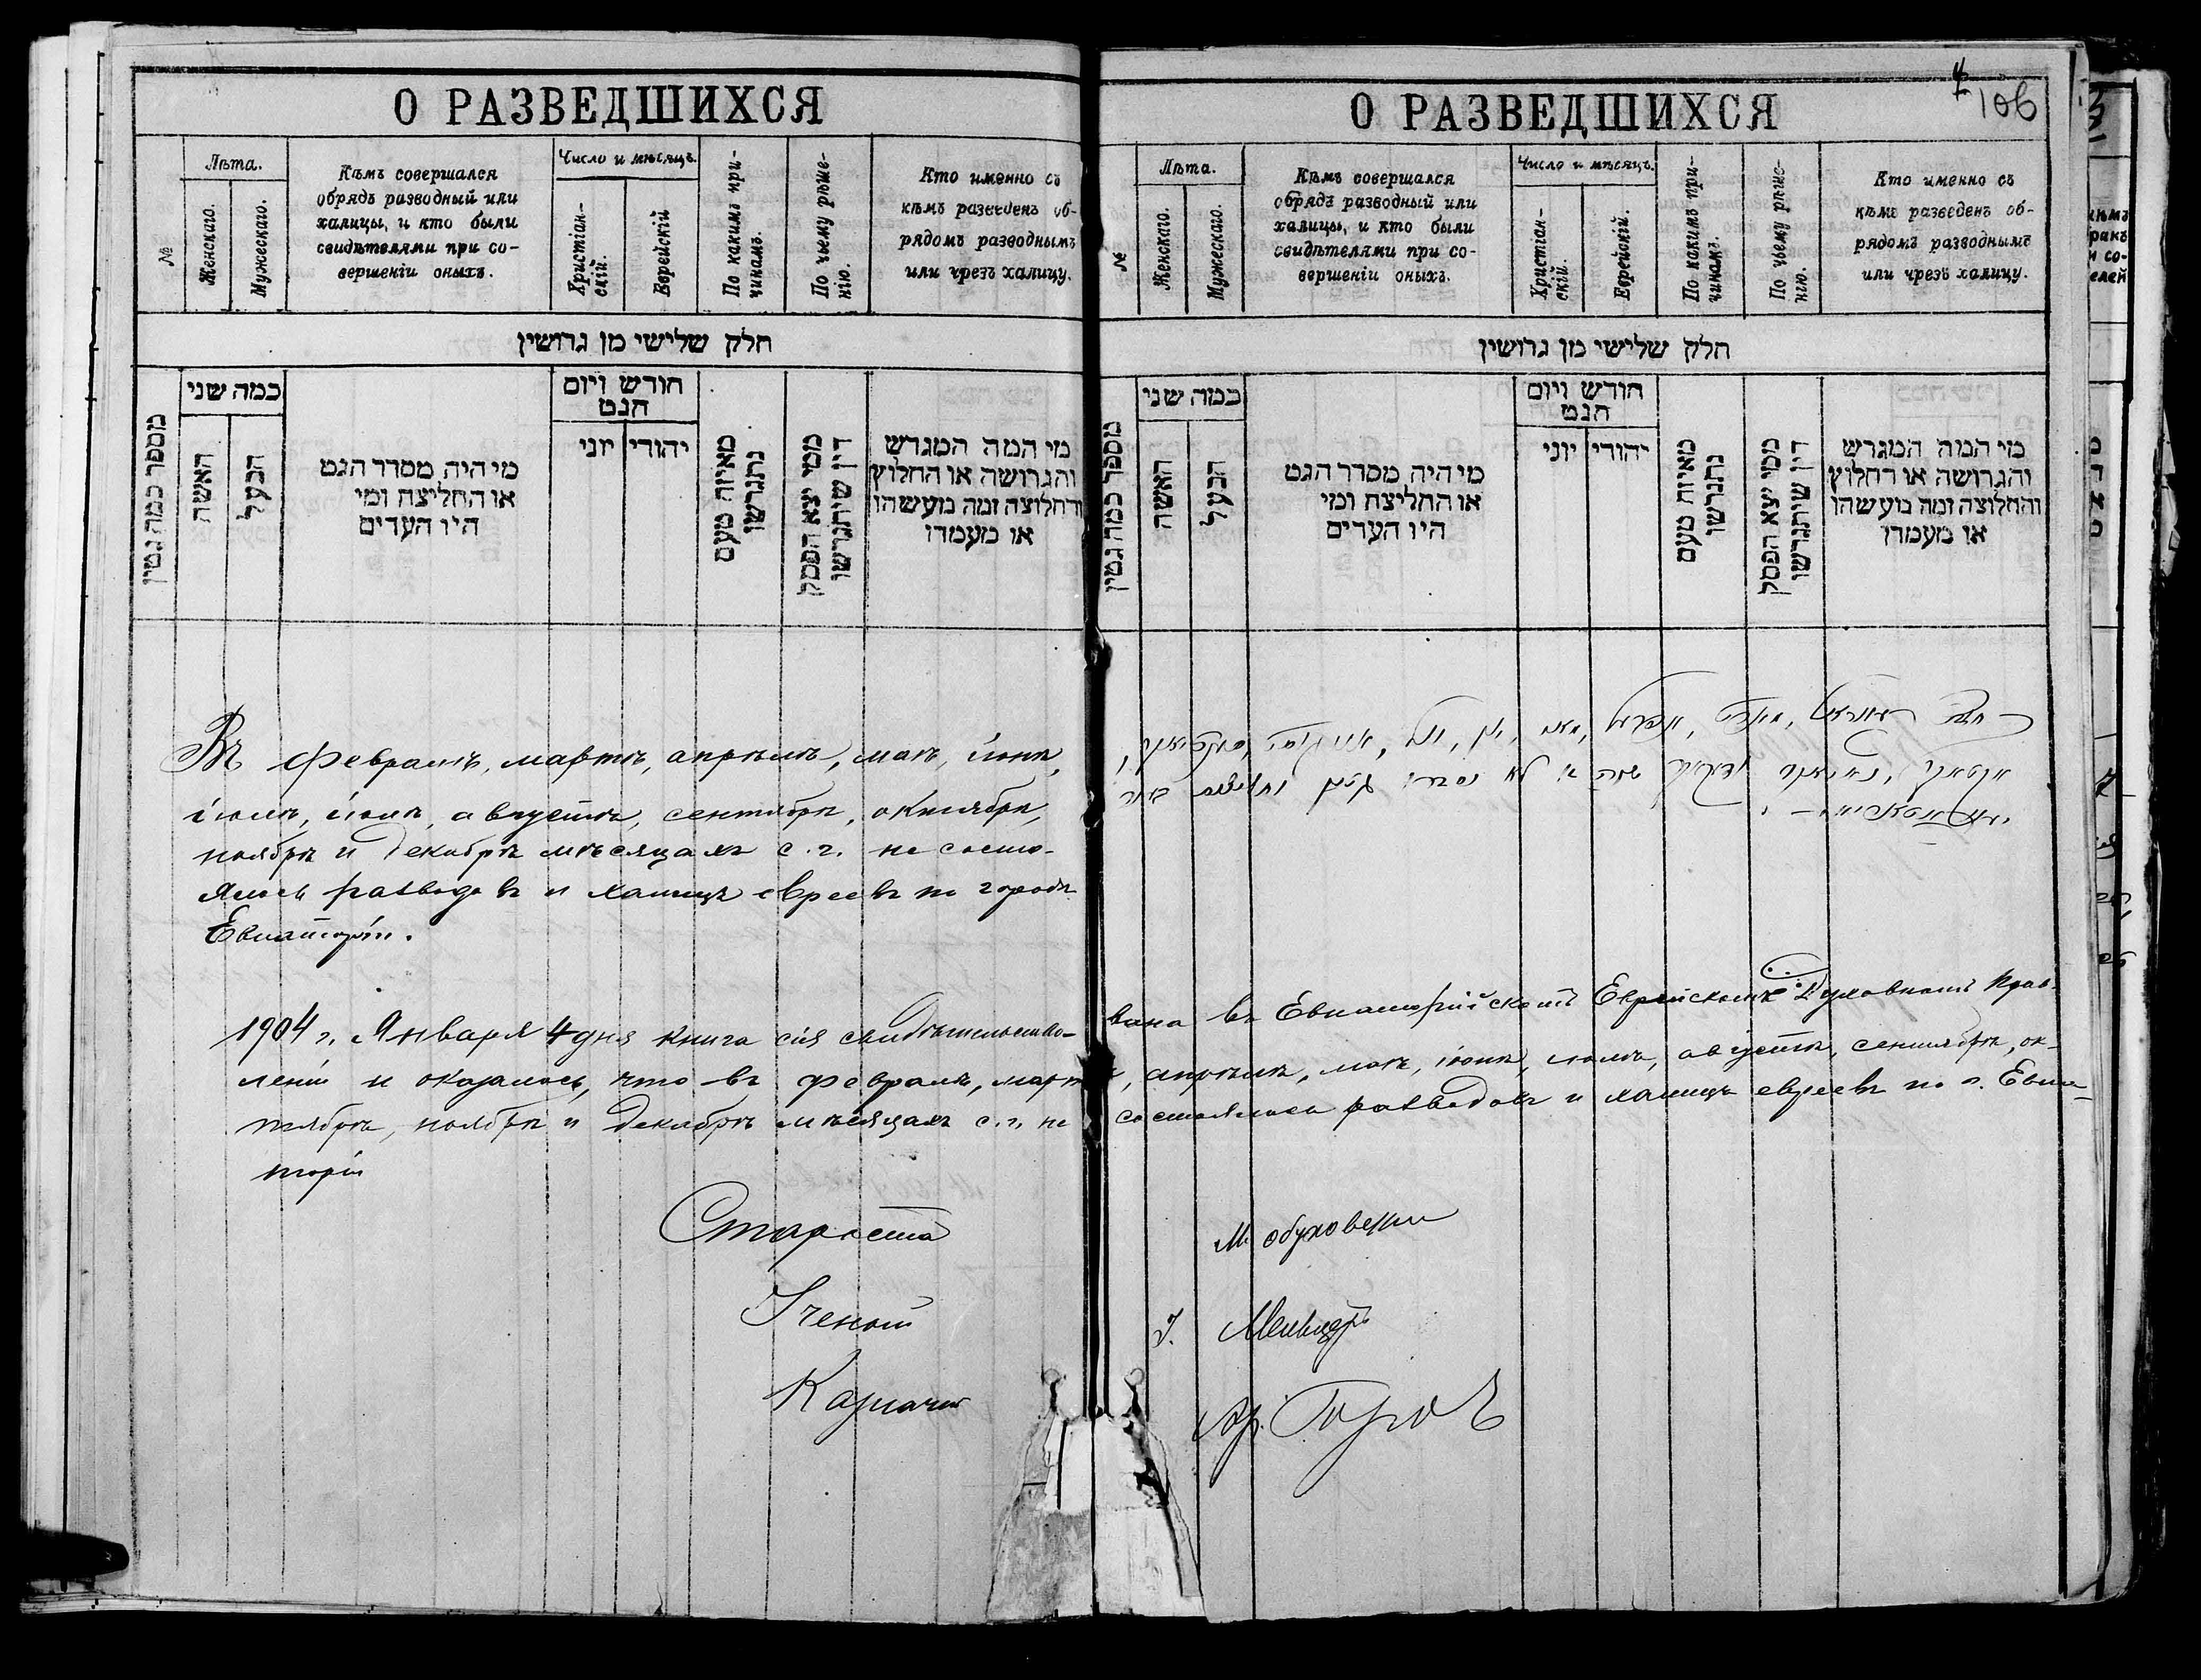 О РАЗВЕДШИХСЯ
№
Лѣта.
Женскаго.
Мужескаго.
Кѣмъ совершался
обрядъ разводный или
халицы, и кто были
свидѣтелями при со-
вершеніи оныхъ.
Число и мѣсяцъ.
Христіан-
скій.
Еврейскій
По какимъ при-
чинамъ.
По чьему рѣше-
нію.
Кто именно съ
кѣмъ разведенъ об-
рядомъ разводнымъ
или чрезъ халицу.
חלק שלישי מן גרושין
מספר כמה גטין
כמה שני
האשה
הבעל
מי היה מסדר הגט
או החליצה ומי
היו העדים
חודש ויום
הגט
יוני
יהודי
מאיזה טעם
נתגרשו
ממי יצא הפסק
דין שיתגרשו
מי המה המגרש
והגרושה או החלוץ
והחלוצה ומה מעשהו
או מעמדו
Въ февралѣ, мартѣ, апрѣлѣ, маѣ, іюнѣ,
іюлѣ, іюлѣ, августѣ, сентябрѣ, октябрѣ,
ноябрѣ и декабрѣ мѣсяцахъ с. г. не состо-
ялось разводовъ и халицъ евреевъ по городу
Евпаторіи.
О РАЗВЕДШИХСЯ
4
106
№
Лѣта.
Женскаго.
Мужескаго.
Кѣмъ совершался
обрядъ разводный или
халицы, и кто были
свидѣтелями при со-
вершеніи оныхъ.
Число и мѣсяцъ.
Христіан-
скій.
Еврейскій.
По какимъ при-
чинамъ.
По чьему рѣше-
нію.
Кто именно съ
кѣмъ разведенъ об-
рядомъ разводнымъ
или чрезъ халицу.
חלק שלישי מן גרושין
מספר כמה גטין
כמה שני
האשה
הבעל
מי היה מסדר הגט
או החליצה ומי
היו העדים
חודש ויום
הגט
יוני
יהודי
מאיזה טעם
נתגרשו
ממי יצא הפסק
דין שיתגרשו
מי המה המגרש
והגרושה או החלוץ
והחלוצה ומה מעשהו
או מעמדו
1904 г. Января 4 дня книга сія свидѣтельство- вана въ Евпаторійскомъ Еврейскомъ Духовномъ Прав-
леніи и оказалось, что въ февралѣ, мартѣ, апрѣлѣ, маѣ, іюнѣ, іюлѣ, августѣ, сентябрѣ, ок-
тябрѣ, ноябрѣ и декабрѣ мѣсяцахъ с. г. не состоялось разводовъ и халицъ евреевъ по г. Евпа-
торіи
Староста М. Обуховскій
Ученый І.
Казначей